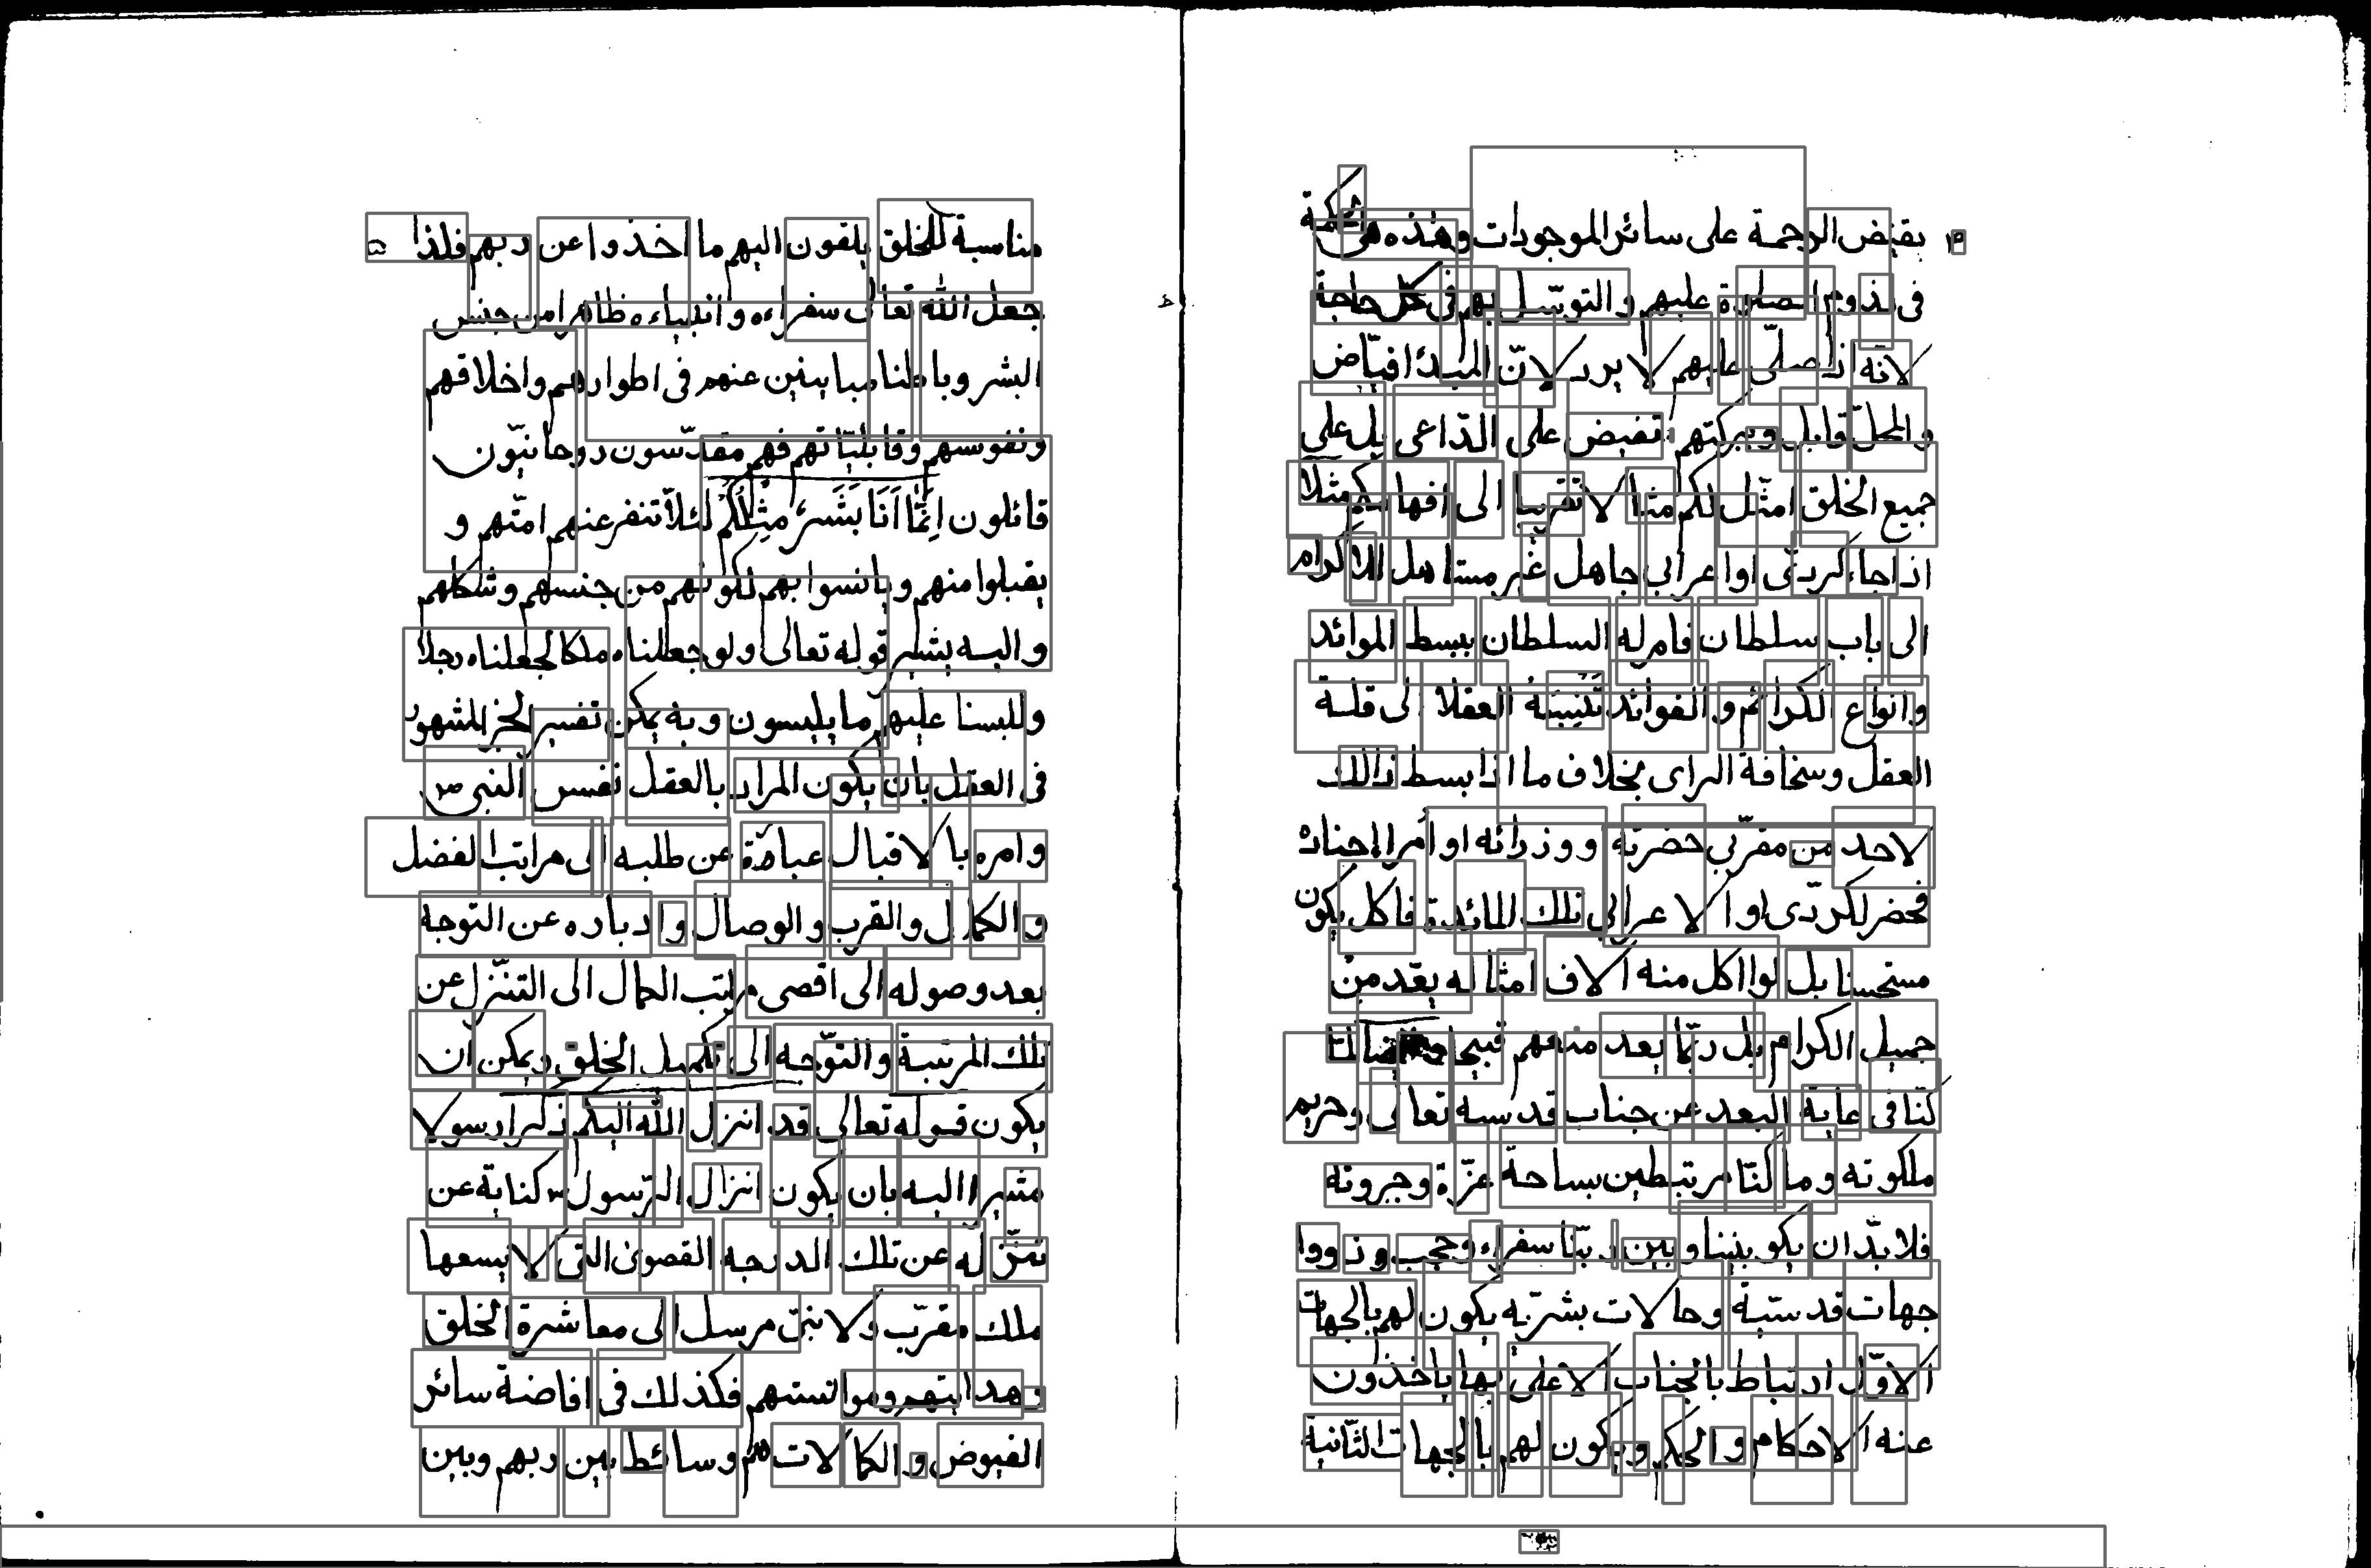 بفيض الرحمة على سائر الموجودات وهذه هى الحكمة
فى لزوم الصلوة عليهم والتوسّل بهم فى كل حاجة
لانّه اذا صلّى عليهم لا يرد لانّ المبدأ فيّاض
والمحلّ قابل وببركتهم تفيض على الدّاعى بل على
جميع الخلق امثّل لكم مثالا تقريبا الى افهامكم مثلا
اذا جاء كردىّ او اعرابى جاهل غير مستاهل للاكرام
الى باب سلطان فامر له السلطان ببسط الموائد
وانواع الكرائم و الفوائد العقلا الى قلة
العقل وسخافة الراى بخلاف ما اذا بسط ذالك
لاحد من مقرّبى حضرته ووزرائه او امرا اجناده
فحضر الكردّى او الاعرابى تلك المائدة فاكل يكون
مستحسنا بل لو اكل منه الاف امثاله يعّد من
جميل الكرام بل ربّما يعد منعهم قبيحا
كنّا فى غاية البعد عن جناب قدسه تعالى وحريم
ملكوته وما كنّا مرتبطين بساحة عزّة وجبروته
فلا بدّ ان يكو بيننا وبين ربّنا سفراء وحجب وذووا
جهات قدسيّة وحالات بشريّه يكون لهم بالجهات
الاوّل ارتباط بالجناب الاعلى بها ياخذون
عنه الاحكام و الحكم ويكون لهم بالجهات الثّانية
مناسبة للخلق يلقون اليهم ما اخذوا عن ربهم فلذا
جعل الله تعالى سفراءه وانبياءه ظاهرا من جنس
البشر وباطنا مباينين عنهم فى اطوارهم واخلاقهم
ونفوسهم وقابليّاتهم فهم مقدّسون روحانيّون
قائلون اِنَّمَا اَنَا بَشَرٌ مِثْلُكُمْ لئلاّ تنفر عنهم امّتهم و
يقبلوا منهم ويانسوا بهم لكونهم من جنسهم وشكلهم
واليه يشير قوله تعالى ولو جعلناه ملكا لجعلناه رجلا
وللبسنا عليهم ما يلبسون وبه يمكن تفسير الخبر المشهور
فى العقل بان يكون المراد بالعقل نفس النبى ص
وامره بالاقبال عبارة عن طلبه الى مراتب الفضل
و الكمال والقرب والوصال وادباره عن التوجه
بعد وصوله الى اقصى مراتب الكمال الى التنّزل عن
تلك المرتبة والتوّجه الى تكميل الخلق ويمكن ان
يكون قوله تعالى قد انزل الله اليكم ذكرا رسولا
مشيرا اليه بان يكون انزال الرّسول ص كناية عن
تنزّله عن تلك الدرجه القصوى التى لا يسعها
ملك مقرّب ولا نبىّ مرسل الى معاشرة الخلق
وهدايتهم وموانستهم فكذلك فى افاضة سائر
الفيوض و الكمالات هم وسائط بين ربهم وبين